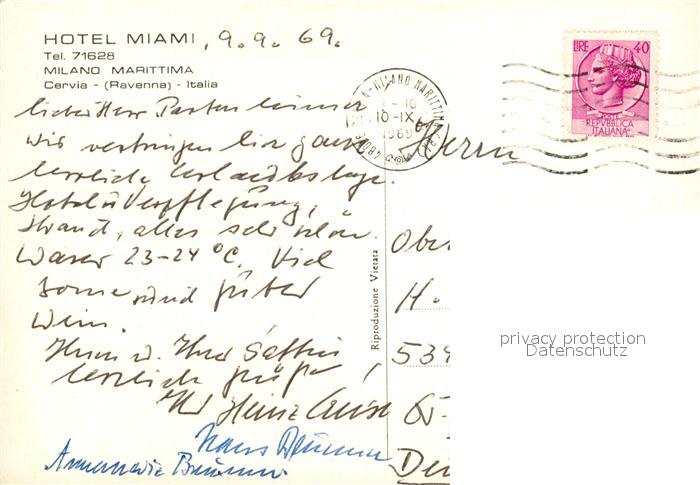 HOTEL MIAMI, 9.9.69.
Tel. 71628
MILANO MARITTIMA
Cervia - (Ravenna) - Italia
Lieber Herr
wir verbringen hier ganz
herrliche Urlaubstage.
Hotel u. Verpflegung,
Strand, alles sehr schön.
Wasser 23-24 °C. Viel
Sonne und guter
Wein.
Ihnen u. Ihrer Gattin
herzliche Grüße
Ihr Heinz
Hans
Annemarie
Riproduzione Vietata
MILANO MARITTIMA
10-IX
1969
LIRE 40
POSTE
REPVBBLICA
ITALIANA
Herrn
Obe
H.
534
65-
Deu
privacy protection
Datenschutz